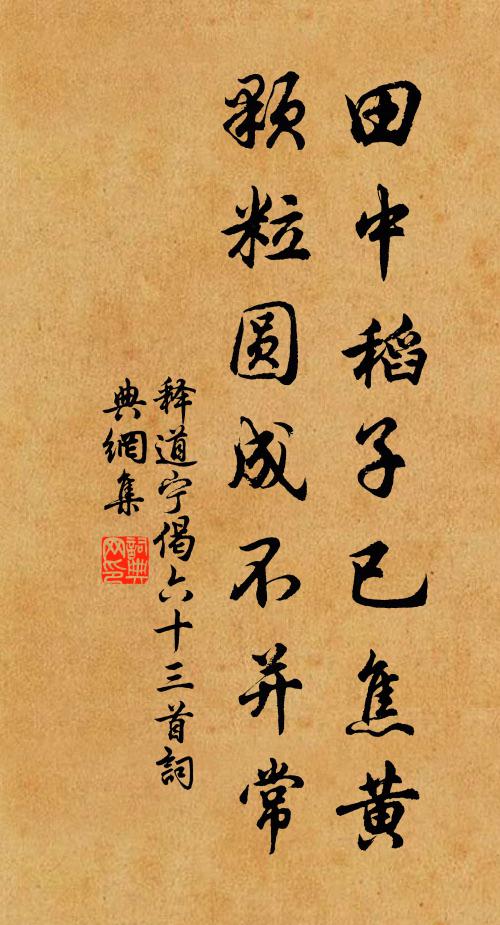 田中稻子已焦黄
颗粒圆成不并常
释道宁偈六十三首詞
典網集
詞典
网印